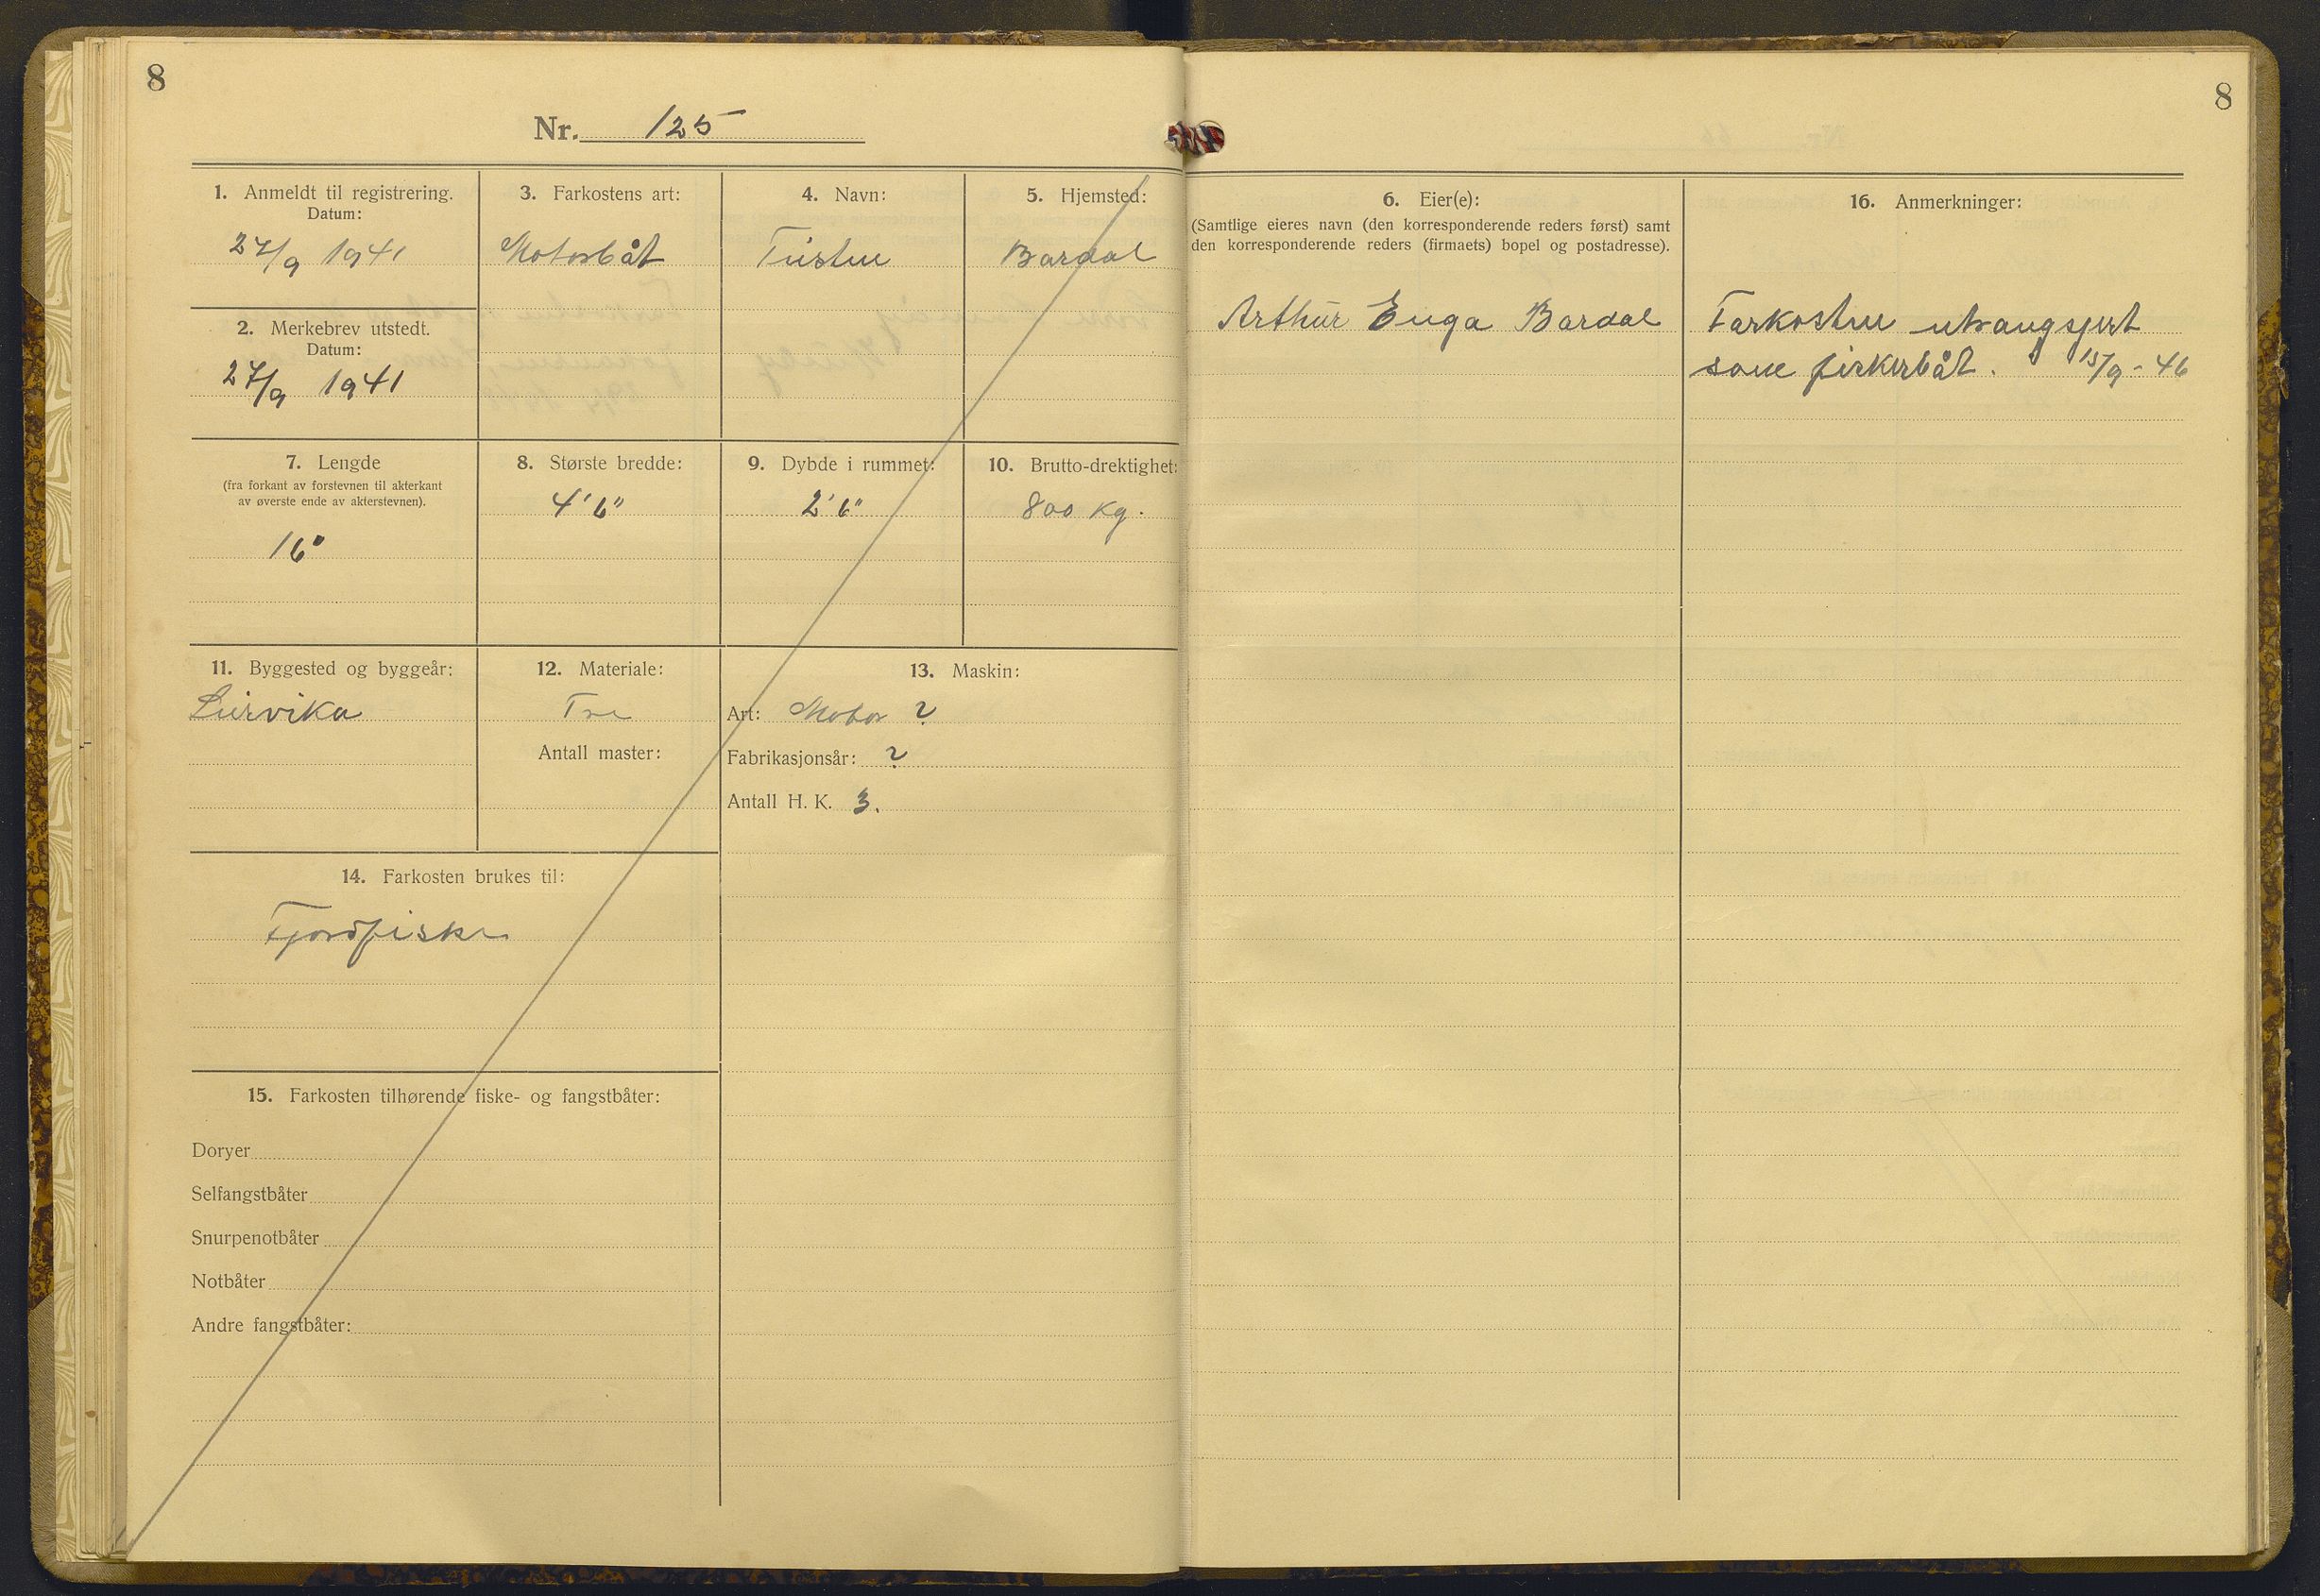 8
Nr. 125
1. Anmeldt til registrering.
Datum:
27/9 1941
2. Merkebrev utstedt.
Datum:
27/9 1941
3. Farkostens art:
Motorbåt
4. Navn:
5. Hjemsted:
Bardal
7. Lengde
(fra forkant av forstevnen til akterkant
av øverste ende av akterstevnen).
16'
8. Største bredde:
4'6"
9. Dybde i rummet:
2'6"
10. Brutto-drektighet:
800 kg.
11. Byggested og byggeår:
12. Materiale:
Tre
Antall master:
13. Maskin:
Art: Motor ?
Fabrikasjonsår: ?
Antall H. K. 3.
14. Farkosten brukes til:
Fjordfiske
15. Farkosten tilhørende fiske- og fangstbåter:
Doryer
Selfangstbåter
Snurpenotbåter
Notbåter
Andre fangstbåter:
8
6. Eier(e):
(Samtlige eieres navn (den korresponderende reders først) samt
den korresponderende reders (firmaets) bopel og postadresse).
Arthur Enga Bardal
16. Anmerkninger:
Farkosten utrangsjert
som fiskerbåt. 15/9-46